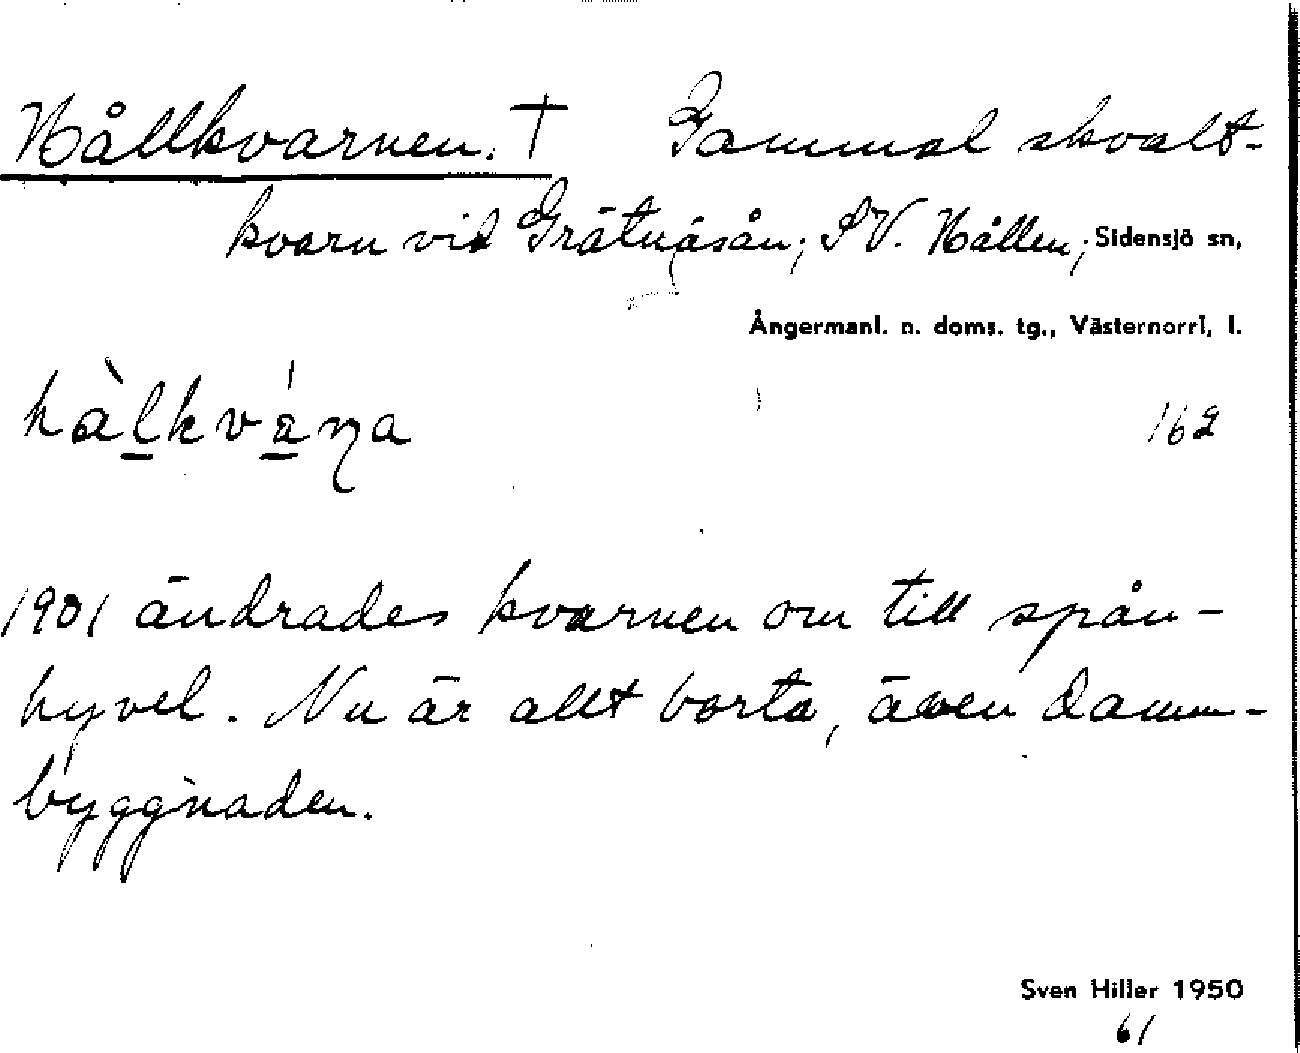 Hållkvarnen. † Gammal skvalt-
kvarn vid Grätnäsån; SV. Hållen; Sidensjö sn,
Ångermanl. n. doms. tg., Västernorrl, l.
hàlkvána
162
1901 ändrades kvarnen om till spån-
hyvel. Nu är allt borta, även damm-
byggnaden.
Sven Hiller 1950
61